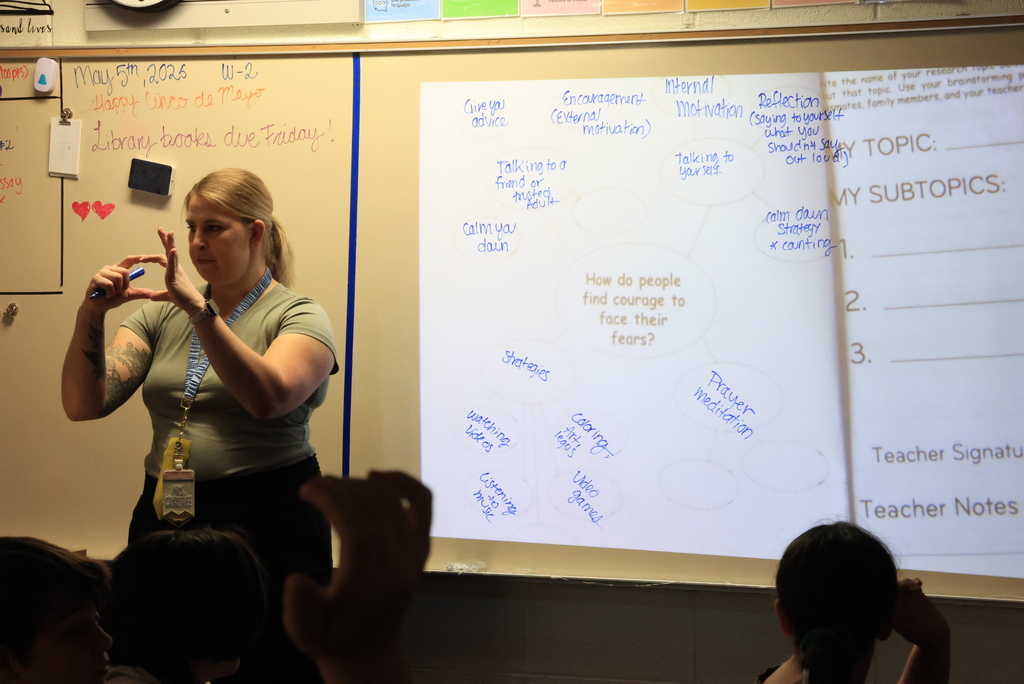 sand lives
May 5th, 2026 W-2
Happy Cinco de Mayo
Library books due Friday!
#2
Give you
advice
Encouragement
(External
motivation)
Internal
Motivation
Reflection
(saying to yourself
what you
shouldn't say
out loud)
Talking to a
friend or
trusted
Adult
Talking to
yourself
Calm you
down
calm down
Strategy
* counting
How do people
find courage to
face their
fears?
Strategies
Watching
Videos
Coloring,
Art,
legos
Listening
to
music
Video
games
Prayer
meditation
te the name of your research topic
ut that topic. Use your brainstorming p
mates, family members, and your teacher
MY TOPIC:
MY SUBTOPICS:
1.
2.
3.
Teacher Signatu
Teacher Notes